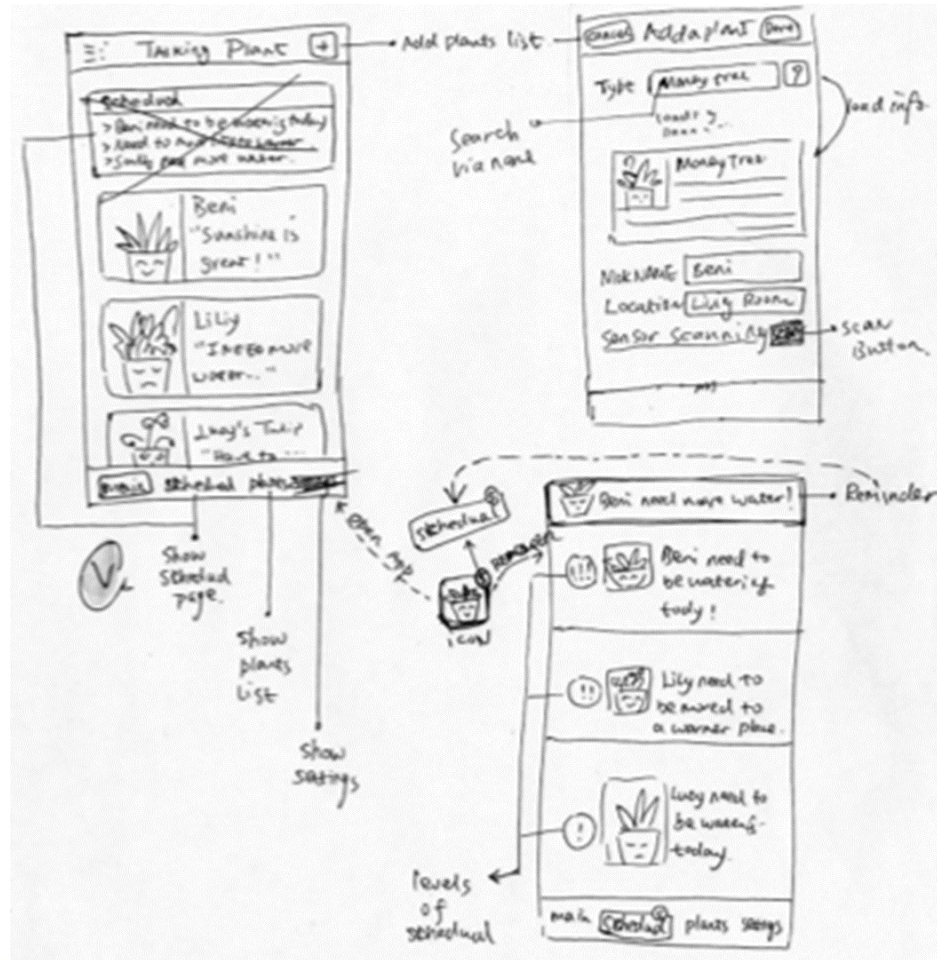 Talking Plant +
Schedual
> Beni need to be watering today
> Need to
> more water.
Beni
"Sunshine is
great!"
Liliy
"I need more
water..."
Lucy's Tulip
"Have to ...
main schedual plants
Show
Schedual
page.
Show
plants
List
Show
settings
V
Add plants list
Cancel Add a plant Done
Type Money tree ?
loading
Search
via name
load info
Money Tree
NickNAME Beni
Location Living Room
Sensor Scanning scan
scan
Button.
open app
schedual
icon
REMINDER
Beni need more water!
Reminder
!!! Beni need to
be watering
tody!
!! Lily need to
be moved to
a warmer place.
! Lucy need to
be watering
today.
levels
of
schedual
main schedual plants settings